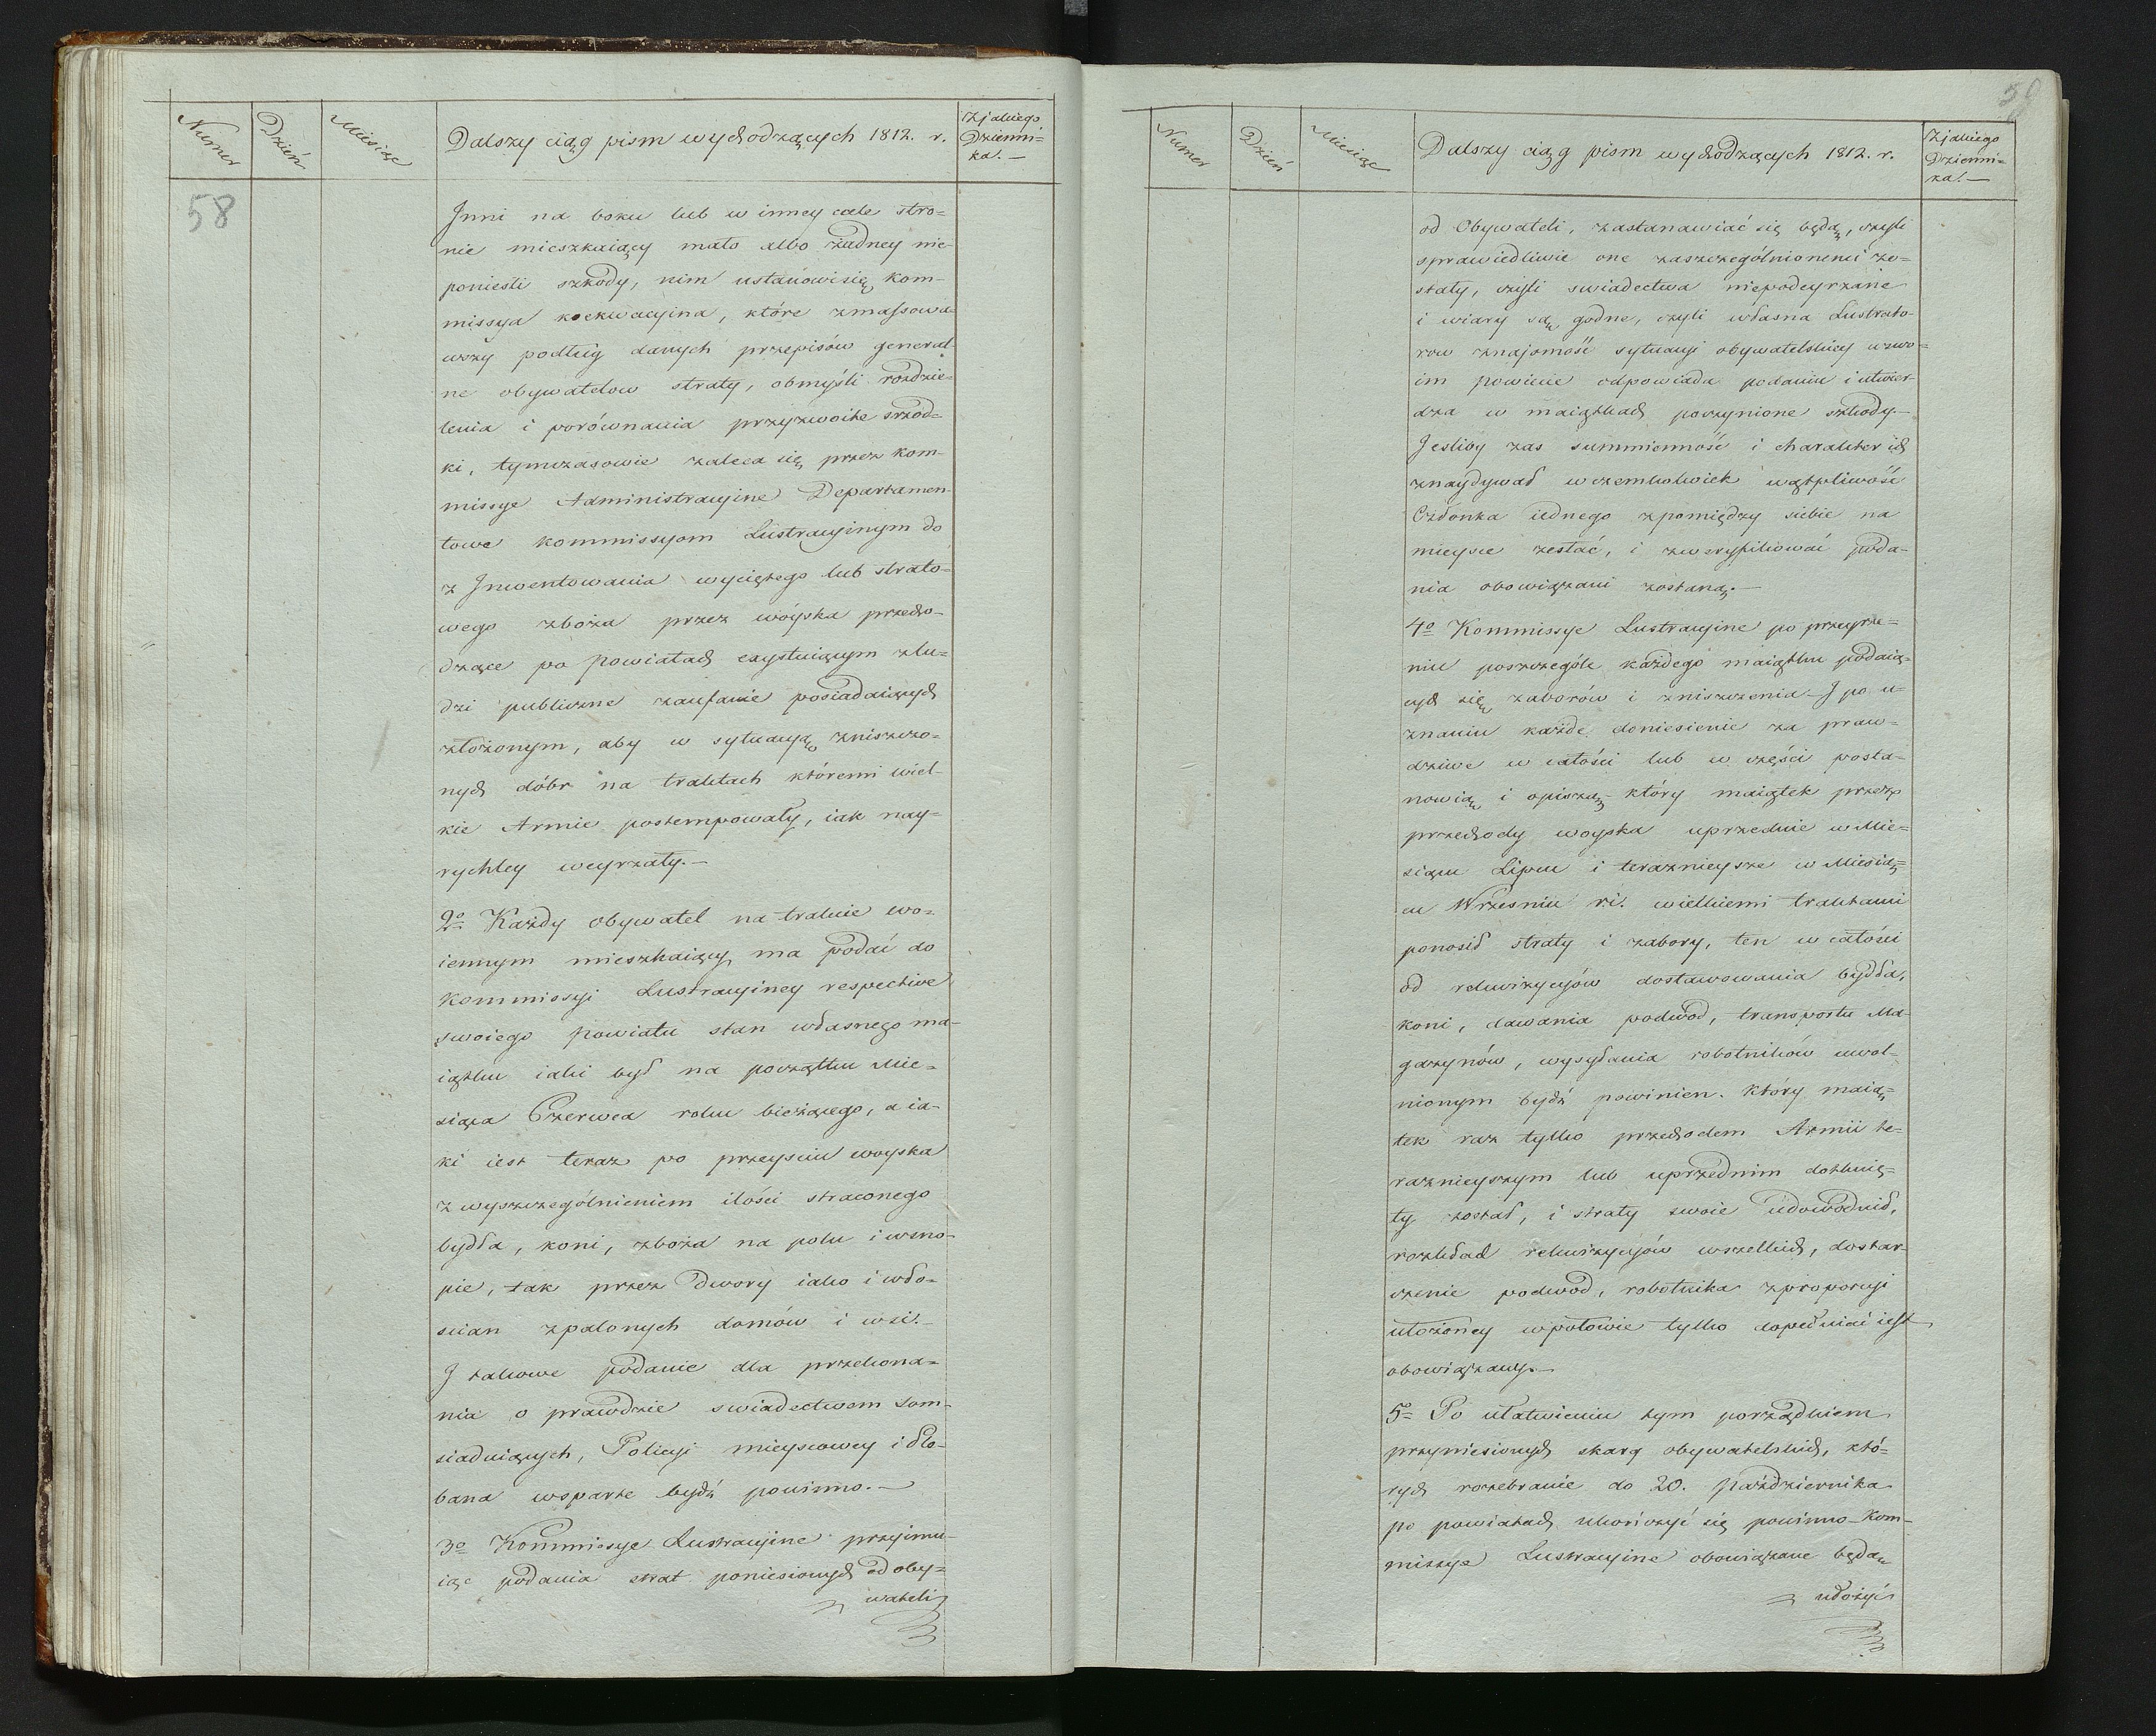 Numer
Dzień
Miesiąc
Dalszy ciąg pism wychodzących 1812. r.
Zjakiego
Dzienni=
ka.—
58
Inni na boku lub w inney cale stro=
nie mieszkaiący mało albo żadney nie
ponieśli szkody, nim ustanowi się kom-
missya koekwacyina, które zmassowa
wszy podług danych przepisów general-
ne obywatelow straty, obmyśli rozdzie-
lenia i porównania przyzwoite srzod=
ki, tymczasowie zaleca się przez kom-
missye Administracyine Departamen-
towe kommissyom Lustracyinym do
z Inwentowania wyciętego lub strato-
wego zboża przez woyska przecho-
dzące po powiatach exystuiącym zlu=
dzi publiczne zaufanie posiadaiących
złożonym, aby w sytuacyą zniszczo-
nych dóbr na traktach któremi wiel-
kie Armie postempowały, iak nay-
rychley weyrzały.—
2o Każdy obywatel na trakcie wo-
iennym mieszkaiący ma podać do
Kommissyi Lustracyiney respective
swoiego powiatu stan własnego ma-
iątku iaki był na początku Mie-
siąca Czerwca roku bieżącego, a ia-
ki iest teraz po przeysciu woyska
z wyszczególnieniem ilości straconego
bydła, koni, zboża na polu i w sno-
pie, tak przez Dwory iako i wło-
scian zpalonych domów i wsi.—
I takowe podanie dla przekona=
nia o prawdzie swiadectwem som-
siaduiących, Policyi mieyscowey i Ple-
bana wsparte bydź powinno.—
3o Kommissye Lustracyine przyimu-
iąc podania strat poniesionych od oby=
wateli
59
Numer
Dzień
Miesiąc
Dalszy ciąg pism wychodzących 1812. r.
Zjakiego
Dzienni=
ka.—
od Obywateli, zastanawiać się będą, czyli
sprawiedliwie one zaszczególnionemi zo=
stały, czyli swiadectwa niepodeyrzane
i wiary są godne, czyli własna Lustrato-
row znajomość sytuacyi obywatelskiey w swo-
im powiecie odpowiada podaniu i utwier-
dza w maiątkach poczynione szkody.—
Jesliby zas summienność i charakter ich
znaydywał w czemkolwiek wątpliwość
Członka iednego zpomiędzy siebie na
mieysce zesłać, i zweryfikować poda-
nia obowiązani zostaną.—
4o Kommissye Lustracyine po przeyrze=
niu poszczególe każdego maiątku podaią-
cych się zaborów i zniszczenia – I po u-
znaniu każde doniesienie za praw-
dziwe w całości lub w części posta-
nowią i opiszą, który maiątek przez
przechody woyska uprzednie w Mie=
siącu Lipcu i teraznieysze w Miesią=
cu Wrzesniu ri. wielkiemi traktami
ponosił straty i zabory, ten w całości
od rekwizycyów dostawowania bydła,
koni, dawania podwod, transportu Ma-
gazynów, wysyłania robotników uwol-
nionym bydź powinien. Który maią-
tek raz tylko przechodem Armii te-
raznieyszym lub uprzednim dotknię=
ty został, i straty swoie udowodnił,
rozkład rekwizycyów wszelkich, dostar-
czenie podwod, robotnika z proporcyi
ułożoney w połowie tylko dopełniać iest
obowiązany.—
5o Po ułatwieniu tym porządkiem
przyniesionych skarg obywatelskich, któ-
rych rozebranie do 20. Października
po powiatach ukończyć się powinno – Kom-
missye Lustracyine obowiązane będą
ułożyć